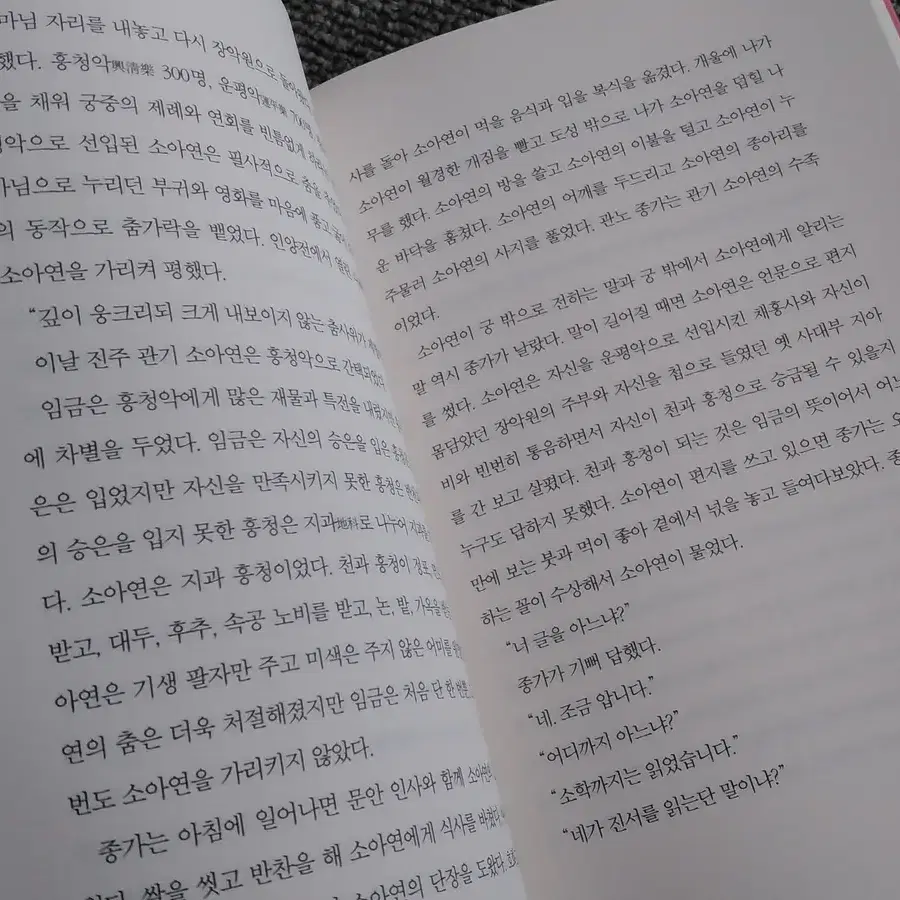 마님 자리를 내놓고 다시 장악원으로
했다. 흥청악興淸樂 300명, 운평악運平樂 700명,
을 채워 궁중의 제례와 연회를 빈틈없게
평악으로 선입된 소아연은 필사적으로 춤을
마님으로 누리던 부귀와 영화를 마음에 품고
의 동작으로 춤가락을 뱉었다. 인양전에서 열린
소아연을 가리켜 평했다.
“깊이 웅크리되 크게 내보이지 않는 춤사위가
이날 진주 관기 소아연은 흥청악으로 간택되었다.
임금은 흥청악에게 많은 재물과 특전을
에 차별을 두었다. 임금은 자신의 승은을 입은
은은 입었지만 자신을 만족시키지 못한 흥청은
의 승은을 입지 못한 흥청은 지과地科로 나누어
다. 소아연은 지과 흥청이었다. 천과 흥청이
받고, 대두, 후추, 속공 노비를 받고, 논, 밭, 가옥을
아연은 기생 팔자만 주고 미색은 주지 않은 어미를
연의 춤은 더욱 처절해졌지만 임금은 처음 단 한 번
번도 소아연을 가리키지 않았다.
종가는 아침에 일어나면 문안 인사와 함께 소아연의
쌀을 씻고 반찬을 해 소아연에게 식사를 바쳤다.
소아연의 단장을 도왔다.
사를 돌아 소아연이 먹을 음식과 입을 복식을 옮겼다. 개울에 나가
소아연이 월경한 개짐을 빨고 도성 밖으로 나가 소아연을 덥힐 나
무를 했다. 소아연의 방을 쓸고 소아연의 이불을 털고 소아연이 누
운 바닥을 훔쳤다. 소아연의 어깨를 두드리고 소아연의 종아리를
주물러 소아연의 사지를 풀었다. 관노 종가는 관기 소아연의 수족
이었다.
소아연이 궁 밖으로 전하는 말과 궁 밖에서 소아연에게 알리는
말 역시 종가가 날랐다. 말이 길어질 때면 소아연은 언문으로 편지
를 썼다. 소아연은 자신을 운평악으로 선입시킨 채홍사와 자신이
몸담았던 장악원의 주부와 자신을 첩으로 들였던 옛 사대부 지아
비와 빈번히 통음하면서 자신이 천과 흥청으로 승급될 수 있을지
를 간 보고 살폈다. 천과 흥청이 되는 것은 임금의 뜻이어서 어느
누구도 답하지 못했다. 소아연이 편지를 쓰고 있으면 종가는 오
만에 보는 붓과 먹이 좋아 곁에서 넋을 놓고 들여다보았다. 종
하는 꼴이 수상해서 소아연이 물었다.
“너 글을 아느냐?”
종가가 기뻐 답했다.
“네. 조금 압니다.”
“어디까지 아느냐?”
“소학까지는 읽었습니다.”
“네가 진서를 읽는단 말이냐?”